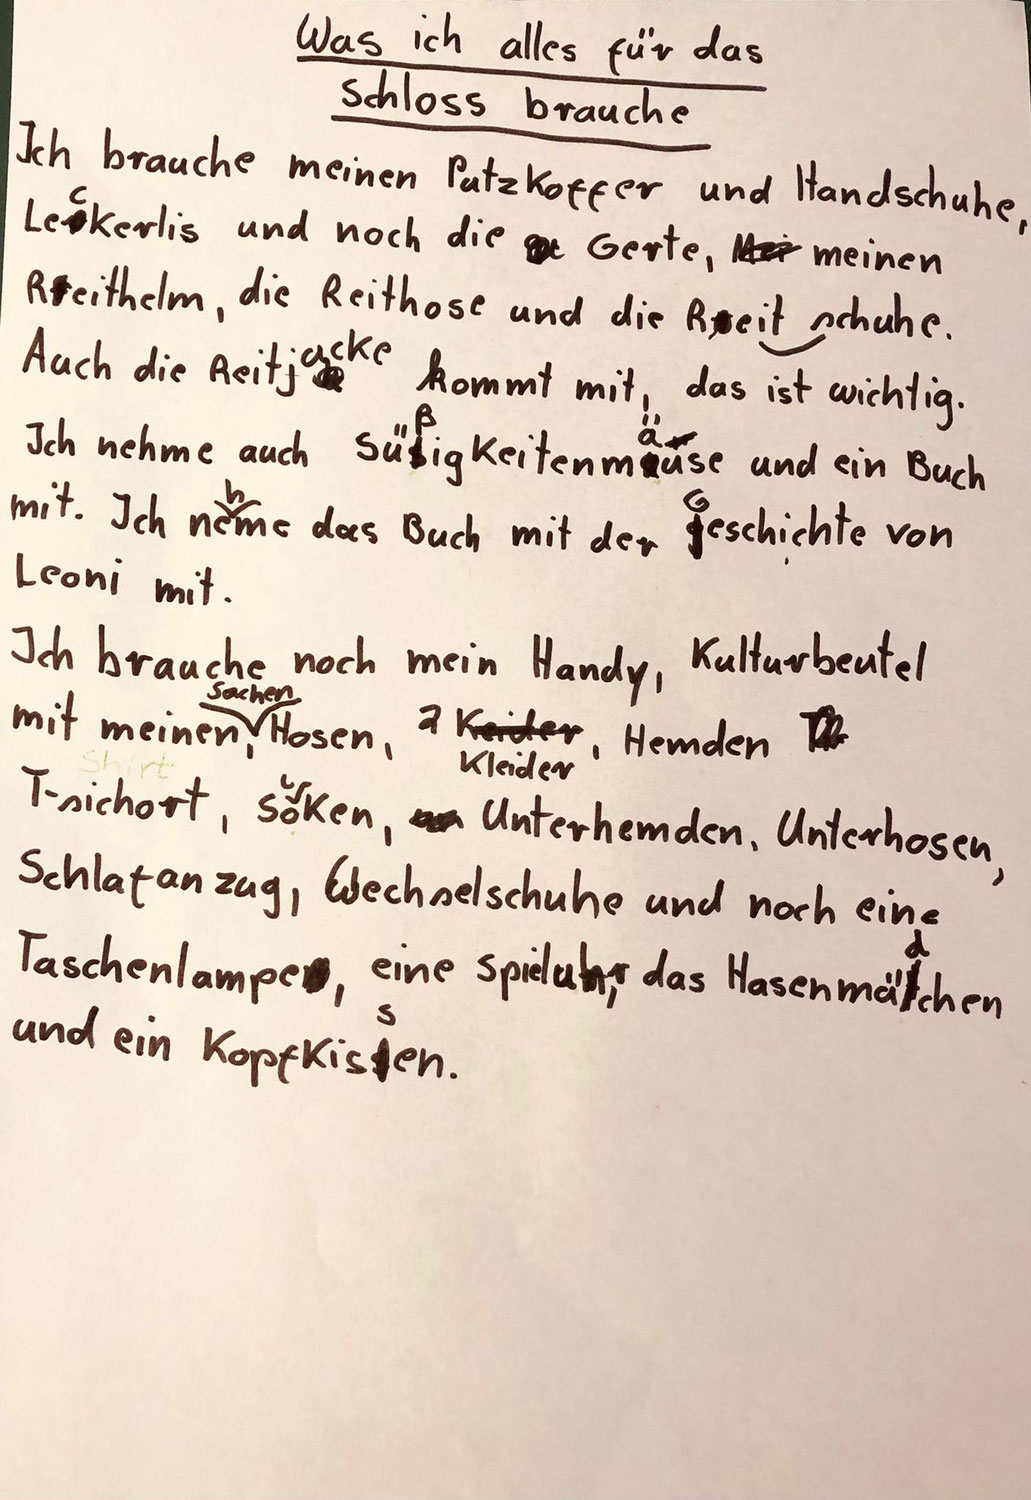 Was ich alles für das
Schloss brauche
Ich brauche meinen Putzkoffer und Handschuhe,
Leckerlis und noch die Gerte, Mei meinen
Reithelm, die Reithose und die Reitschuhe.
Auch die Reitjacke kommt mit, das ist wichtig.
Ich nehme auch Süßigkeitenmäuse und ein Buch
mit. Ich nehme das Buch mit der Geschichte von
Leoni mit.
Ich brauche noch mein Handy, Kulturbeutel
mit meinen Sachen, Hosen, 2 Keider, Hemden
Kleider
Shirt
T-sichort, Socken, Unterhemden, Unterhosen,
Schlafanzug, Wechselschuhe und noch eine
Taschenlampe, eine Spieluhr, das Hasenmädchen
und ein Kopfkissen.